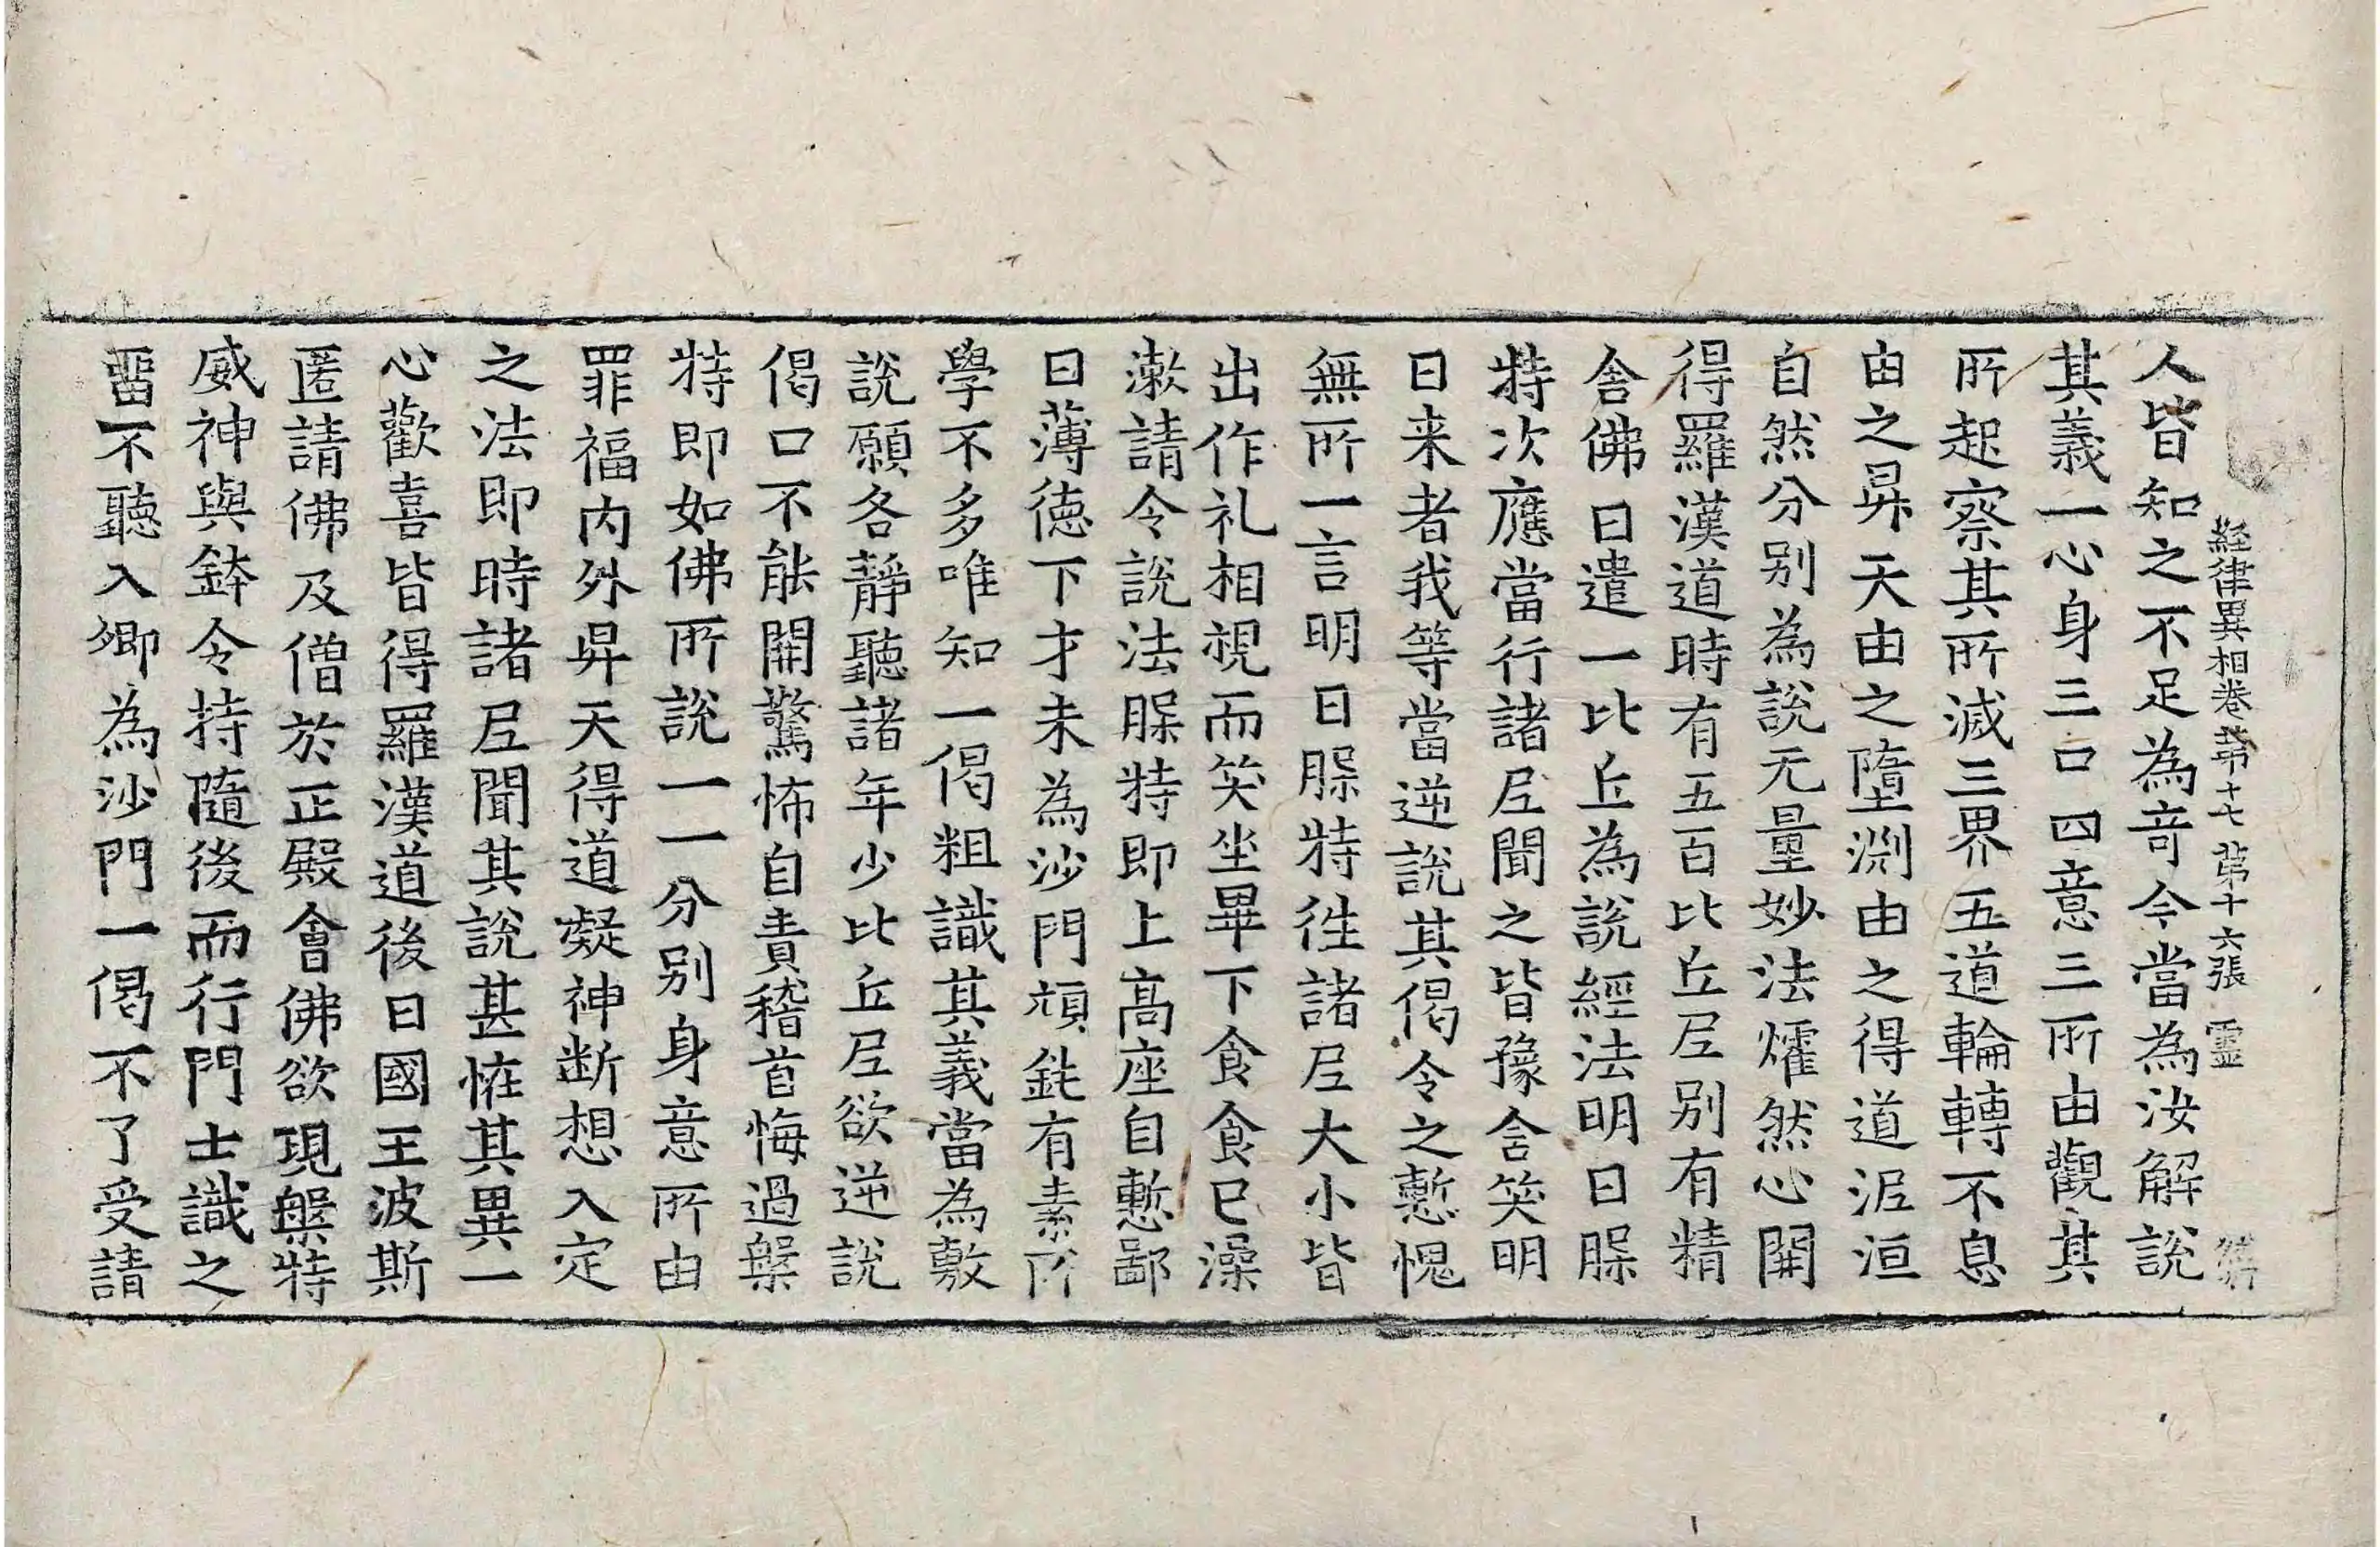 経律異相卷苐十七 苐十六張 靈
人皆知之不足為竒今當為汝解說
其義一心身三口四意三所由觀其
所起察其所滅三界五道輪轉不息
由之昇天由之墮渕由之得道泥洹
自然分別為說无量妙法㸌然心開
得羅漢道時有五百比丘尼別有精
舍佛日遣一比丘為說經法明日䐗
特次應當行諸尼聞之皆豫含笑明
日来者我等當逆說其偈令之慙愧
無所一言明日䐗特徃諸尼大小皆
出作礼相視而笑坐畢下食食已澡
漱請令說法䐗特即上高座自慙鄙
曰薄德下才未為沙門頑鈍有素所
學不多唯知一偈粗識其義當為敷
說願各靜聽諸年少比丘尼欲逆說
偈口不能開驚怖自責稽首悔過槃
特即如佛所說一一分別身意所由
罪福内外昇天得道凝神断想入定
之法即時諸尼聞其說甚恠其異一
心歡喜皆得羅漢道後日國王波斯
匿請佛及僧於正殿會佛欲現槃特
威神與鉢令持隨後而行門士識之
畱不聽入卿為沙門一偈不了受請